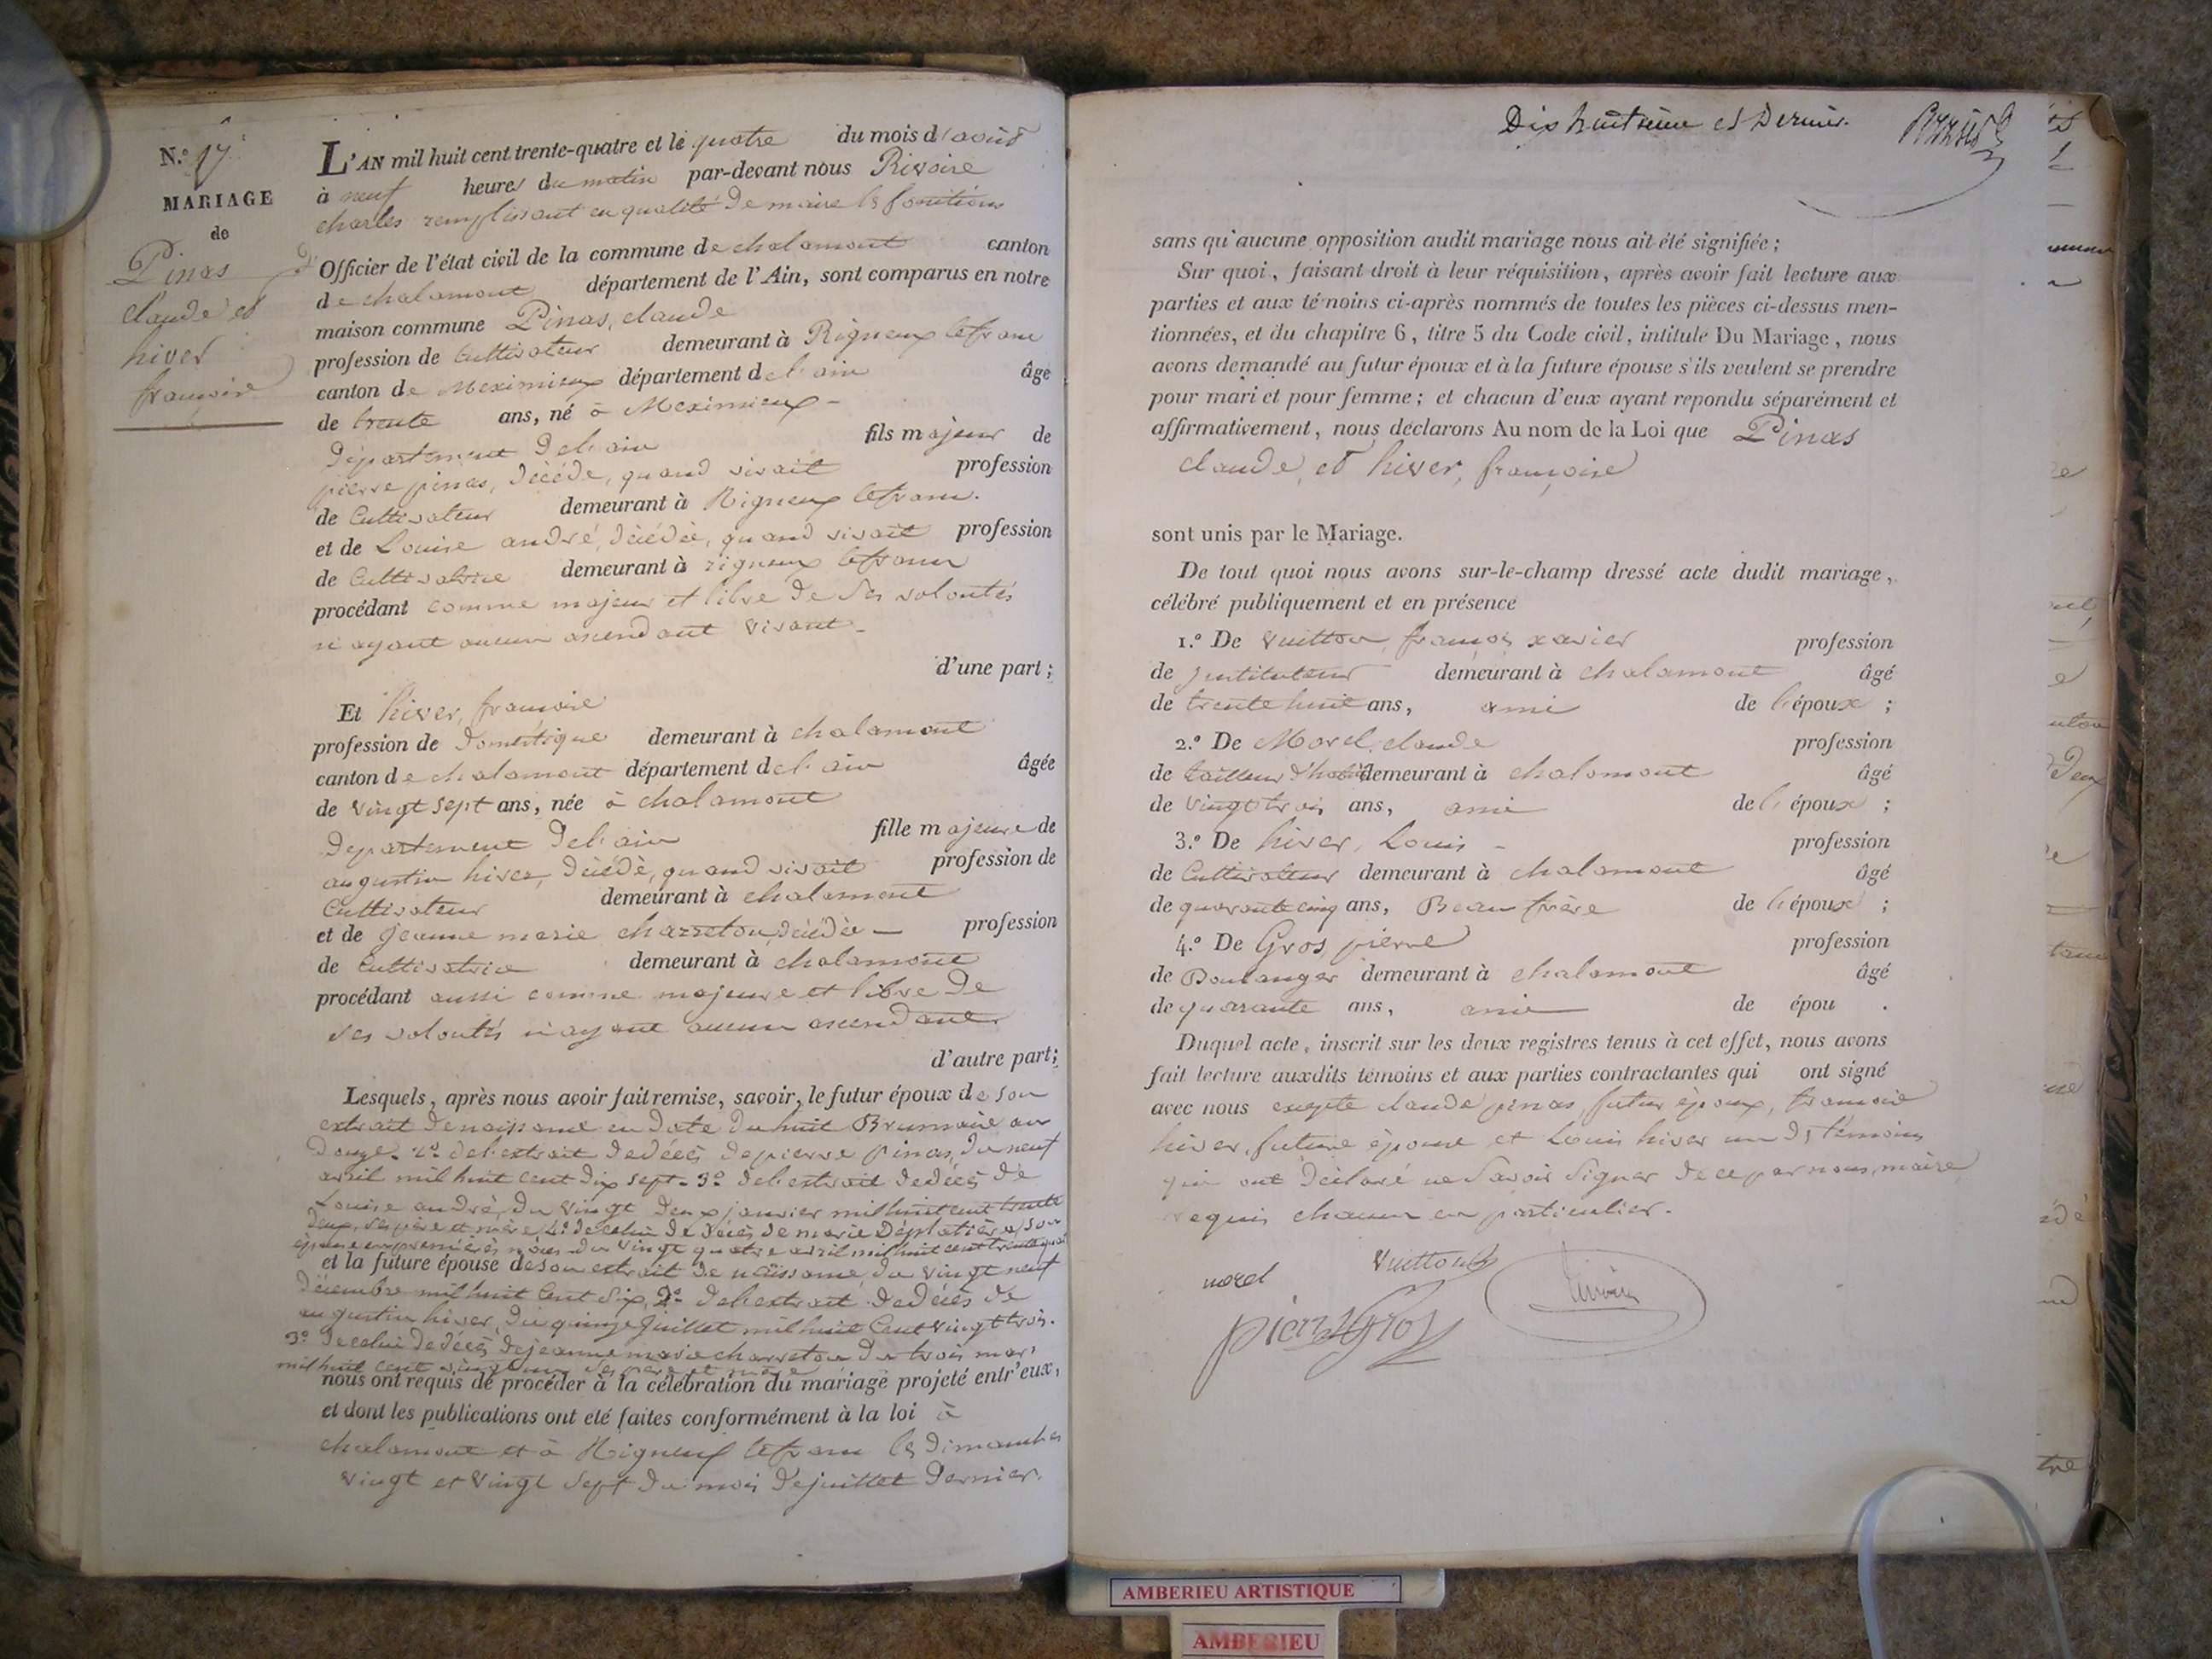 N.º 17
MARIAGE
de
Pinas
claude et
hiver
françoise
L'AN mil huit cent trente-quatre et le quatre du mois d'août
à neuf heures du matin par-devant nous Rivoire
charles remplissant en qualité de maire les fonctions
d'Officier de l'état civil de la commune de chalamont canton
de chalamont département de l'Ain, sont comparus en notre
maison commune Pinas, claude
profession de Cultivateur demeurant à Rigneux lefranc
canton de Meximieux département de l'ain âgé
de trente ans, né à Meximieux -
département de l'ain fils majeur de
pierre pinas, décédé, quand vivait profession
de Cultivateur demeurant à Rigneux lefranc.
et de Louise andré, décédée, quand vivait profession
de Cultivatrice demeurant à rigneux lefranc
procédant comme majeur et libre de ses volontés
n'ayant aucun ascendant vivant -
d'une part;
Et hiver, françoise
profession de Domestique demeurant à chalamont
canton de chalamont département de l'ain âgée
de vingt sept ans, née à chalamont
Département de l'ain fille majeure de
augustin hiver, décédé, quand vivait profession de
Cultivateur demeurant à chalamont
et de jeanne marie charreton, décédée - profession
de Cultivatrice demeurant à chalamont
procédant aussi comme majeure et libre de
ses volontés n'ayant aucun ascendant
d'autre part;
Lesquels, après nous avoir fait remise, savoir, le futur époux de son
extrait de naissance en date du huit Brumaire an
Douze. 2º de l'extrait de décès de pierre pinas, du neuf
avril mil huit cent dix sept. 3º de l'extrait de décès de
Louise andré, du vingt deux janvier mil huit cent trente
deux, ses père et mère 4º de celui de décès de marie son
épouse en premières noces du vingt quatre avril mil huit cent trente
et la future épouse de son extrait de naissance, du vingt neuf
décembre mil huit Cent six, 2º de l'extrait de décès de
augustin hiver, du quinze juillet mil huit Cent vingt trois.
3º de celui de décès de jeanne marie charreton du trois mars
mil huit cent vingt ses père et mère
nous ont requis de procéder à la célébration du mariage projeté entr'eux,
et dont les publications ont été faites conformément à la loi à
chalamont et à Rigneux lefranc les dimanches
vingt et vingt sept du mois de juillet Dernier.
Dix huitième et Dernier.
sans qu'aucune opposition audit mariage nous ait été signifiée;
Sur quoi, faisant droit à leur réquisition, après avoir fait lecture aux
parties et aux témoins ci-après nommés de toutes les pièces ci-dessus men-
tionnées, et du chapitre 6, titre 5 du Code civil, intitulé Du Mariage, nous
avons demandé au futur époux et à la future épouse s'ils veulent se prendre
pour mari et pour femme; et chacun d'eux ayant repondu séparément et
affirmativement, nous déclarons Au nom de la Loi que Pinas
claude, et hiver, françoise
sont unis par le Mariage.
De tout quoi nous avons sur-le-champ dressé acte dudit mariage,
célébré publiquement et en présence
1.º De Vuitton, françois xavier profession
de instituteur demeurant à chalamont âgé
de trente huit ans, ami de l'époux ;
2.º De Morel, claude profession
de tailleur d'habit demeurant à chalamont âgé
de vingt trois ans, ami de l'époux ;
3.º De hiver, Louis - profession
de Cultivateur demeurant à chalamont âgé
de quarante cinq ans, Beau frère de l'époux ;
4.º De Gros, pierre profession
de Boulanger demeurant à chalamont âgé
de quarante ans, ami de épou .
Duquel acte, inscrit sur les deux registres tenus à cet effet, nous avons
fait lecture auxdits témoins et aux parties contractantes qui ont signé
avec nous excepté claude pinas, futur époux, françoise
hiver, future épouse et Louis hiver un des témoins
qui ont déclaré ne savoir signer de ce par nous, maire
requis chacun en particulier.
morel Vuitton
pierre Gros Rivoire
AMBERIEU ARTISTIQUE
AMBERIEU